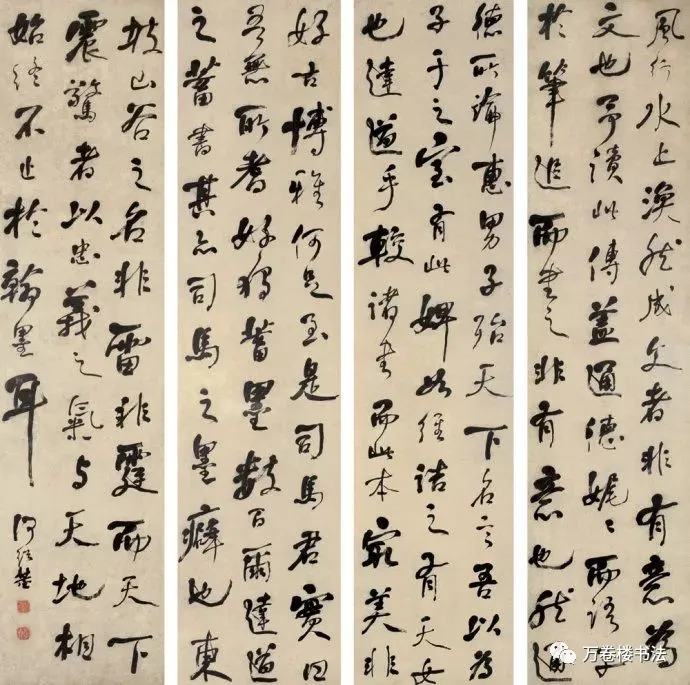 風行水上渙然成文者非有意為
文也予讀此傳蓋通德娓娓而語子
於筆追而書之非有意也然通
德所論惠男子殆天下名言吾以為
子于之室有此婢如維詰之有天女
也達道手較諸書而此本最美非
好古博雅何足至是司馬君實曰
吾無所嗜好獨蓄墨數百爾達道
之蓄書其亦司馬之墨癖也東
坡山谷之名非雷非霆而天下
震驚者以忠義之氣與天地相
始終不止於翰墨耳
何紹基
万卷楼书法